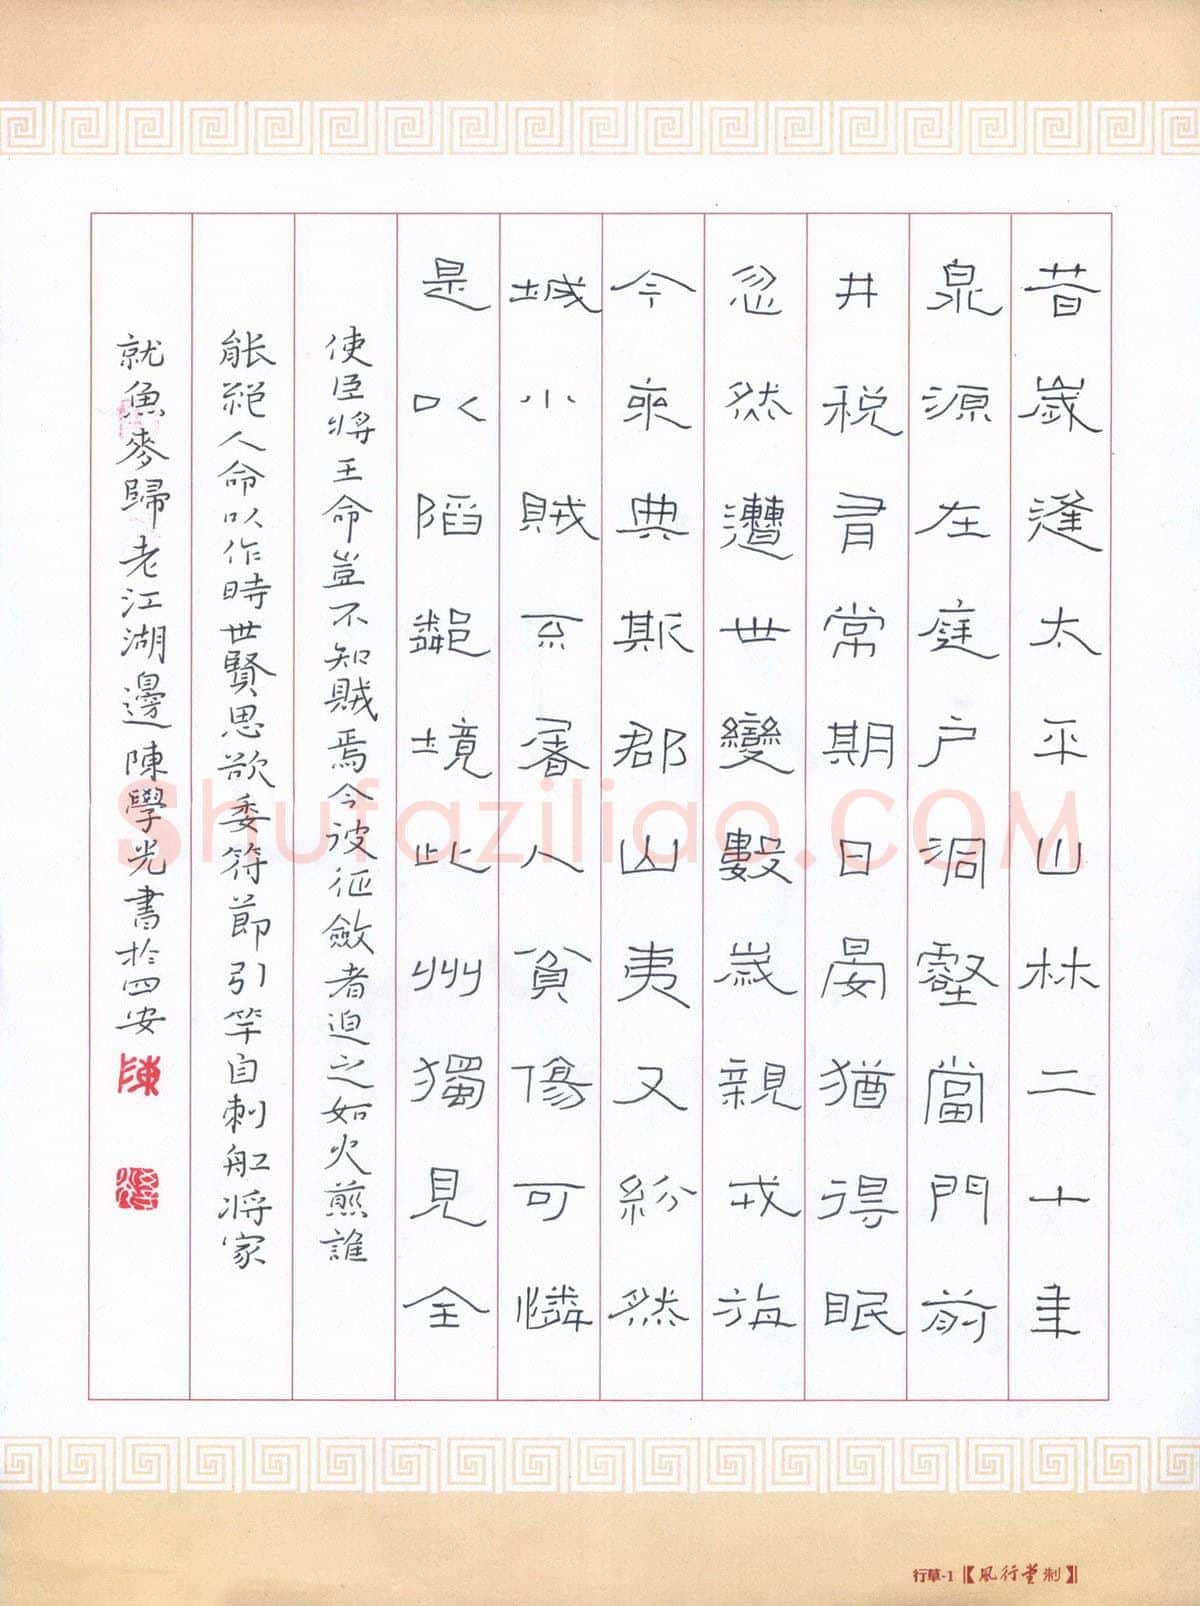 昔歲逢太平山林二十年
泉源在庭戶洞壑當門前
井稅有常期日晏猶得眠
忽然遭世變數歲親戎旃
今來典斯郡山夷又紛然
城小賊不屠人貧傷可憐
是以陷鄰境此州獨見全
使臣將王命豈不知賊焉今彼征斂者迫之如火煎誰
能絕人命以作時世賢思欲委符節引竿自刺船將家
就魚麥歸老江湖邊陳學光書於四安
陳
Shufaziliao.COM
行草-1【風行堂制】